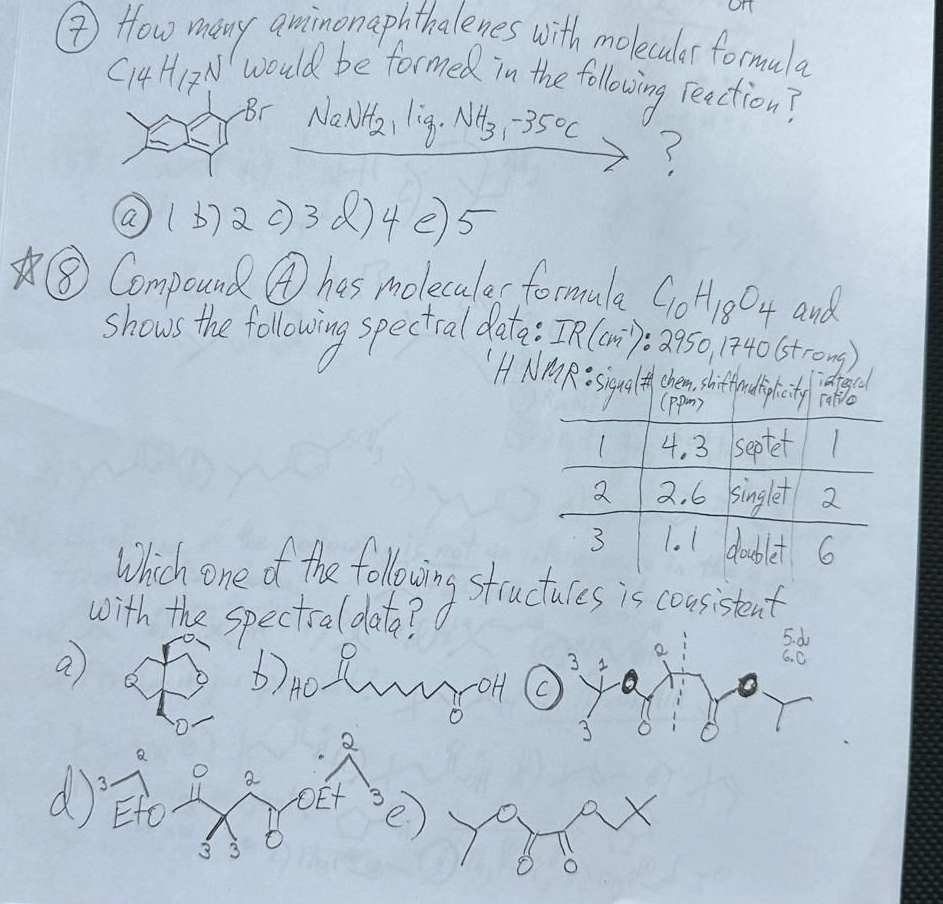 OH
⑦ How many aminonaphthalenes with molecular formula
C14H17N would be formed in the following reaction?
Br NaNH2, liq. NH3, -35°C
?
ⓐ 1 b) 2 c) 3 d) 4 e) 5
☆⑧ Compound Ⓐ has molecular formula C10H18O4 and
shows the following spectral data: IR (cm⁻¹): 2950, 1740 (strong)
¹H NMR: signal# chem. shift (ppm) multiplicity integral ratio
1 4.3 septet 1
2 2.6 singlet 2
3 1.1 doublet 6
Which one of the following structures is consistent
with the spectral data?
5.d
6.c
a) O O O O b) HO O O OH ⓒ 3 1 3 O O 2 O O
d) 3 2 EtO O 3 3 2 O OEt 2 3 e) O O O O